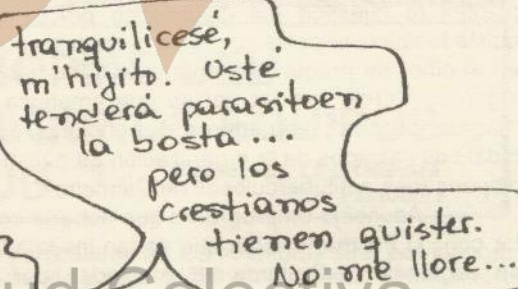 tranquilicesé,
m'hijito. Usté
tenderá parasitoen
la bosta...
pero los
crestianos
tienen quister.
No me llore...
ud Colectiva